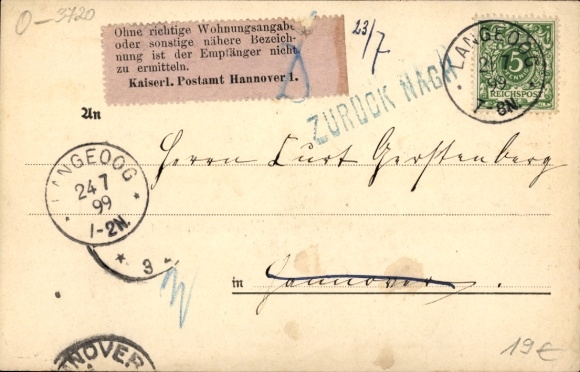 0-3720
Ohne richtige Wohnungsangabe
oder sonstige nähere Bezeich-
nung ist der Empfänger nicht
zu ermitteln.
Kaiserl. Postamt Hannover 1.
23/7
ZURÜCK NACH
LANGEOOG
99
7-8N.
5
PFENNIG
REICHSPOST
An
Herrn Curt Gerstenberg
LANGEOOG
24 7
99
1-2N.
* 3
in Hannover.
NNOVER
19€